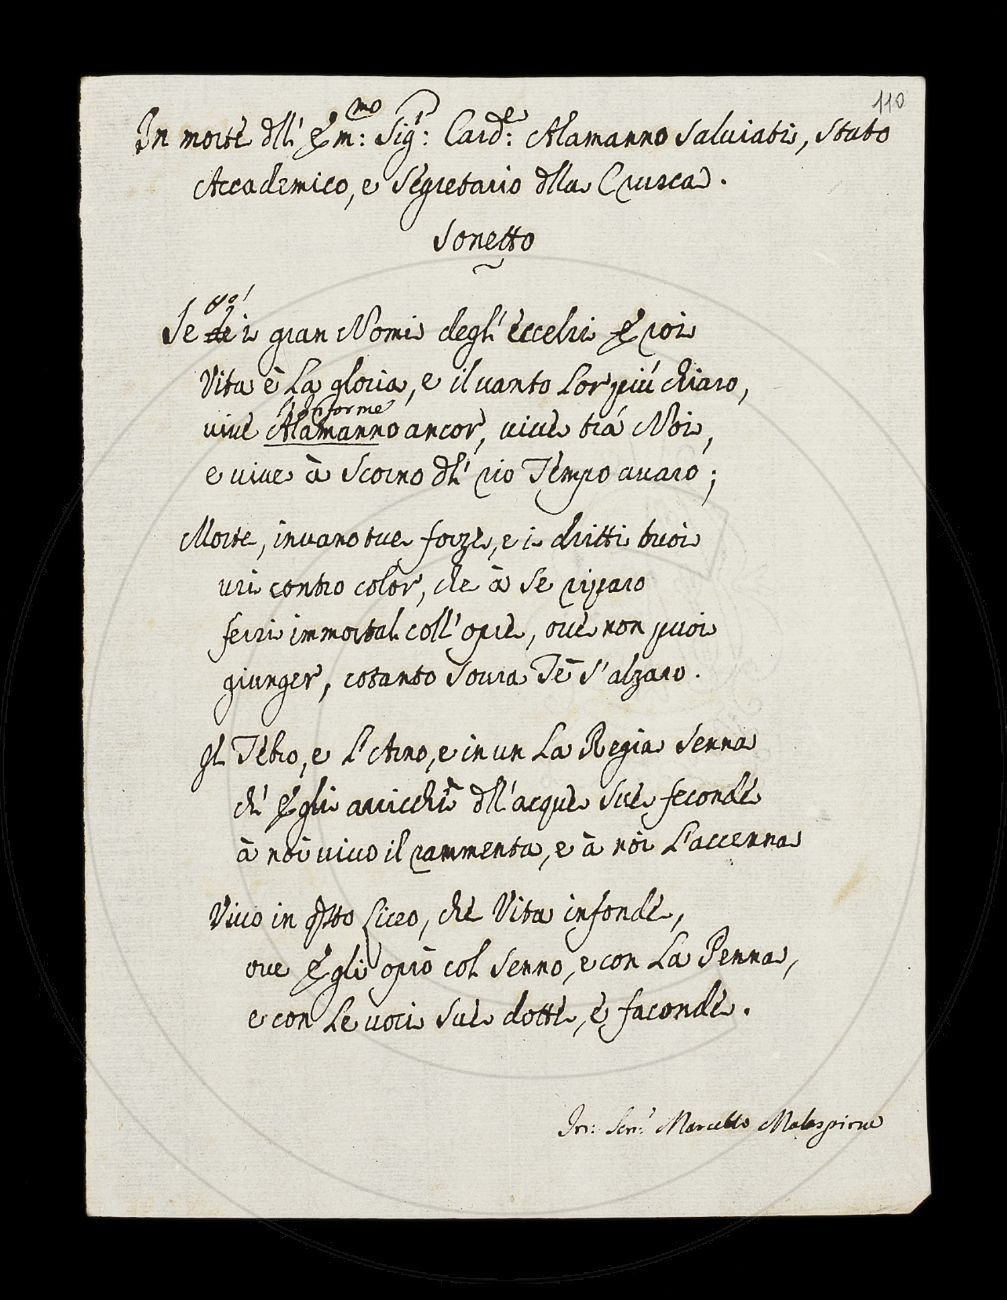 110
In morte dll' Em:mo Sigr: Carde: Alamanno Salviati, stato
Accademico, e Segretario dlla Crusca.
Sonetto
Se de i gran Nomi degl' eccelsi Eroi
Vita è La gloria, e il vanto Lor più chiaro,
vive Alamanno ancor, vive trà Noi,
e vive à Scorno dl' rio Tempo avaro;
Morte, invano tue forze, e i dritti tuoi
usi contro color, che à se riparo
fersi immortal coll'opre, ove non puoi
giunger, cotanto Sovra Te s'alzaro.
Il Tebro, e L'Arno, e in un La Regia Senna
ch' Egli arricchì dll'acque Sue feconde
à noi vivo il rammenta, e à noi L'accenna
Vivo in qsto Liceo, che Vita infonde,
ove Egli oprò col Senno, e con La Penna,
e con Le voci Sue dotte, e faconde.
Marcello Malaspina